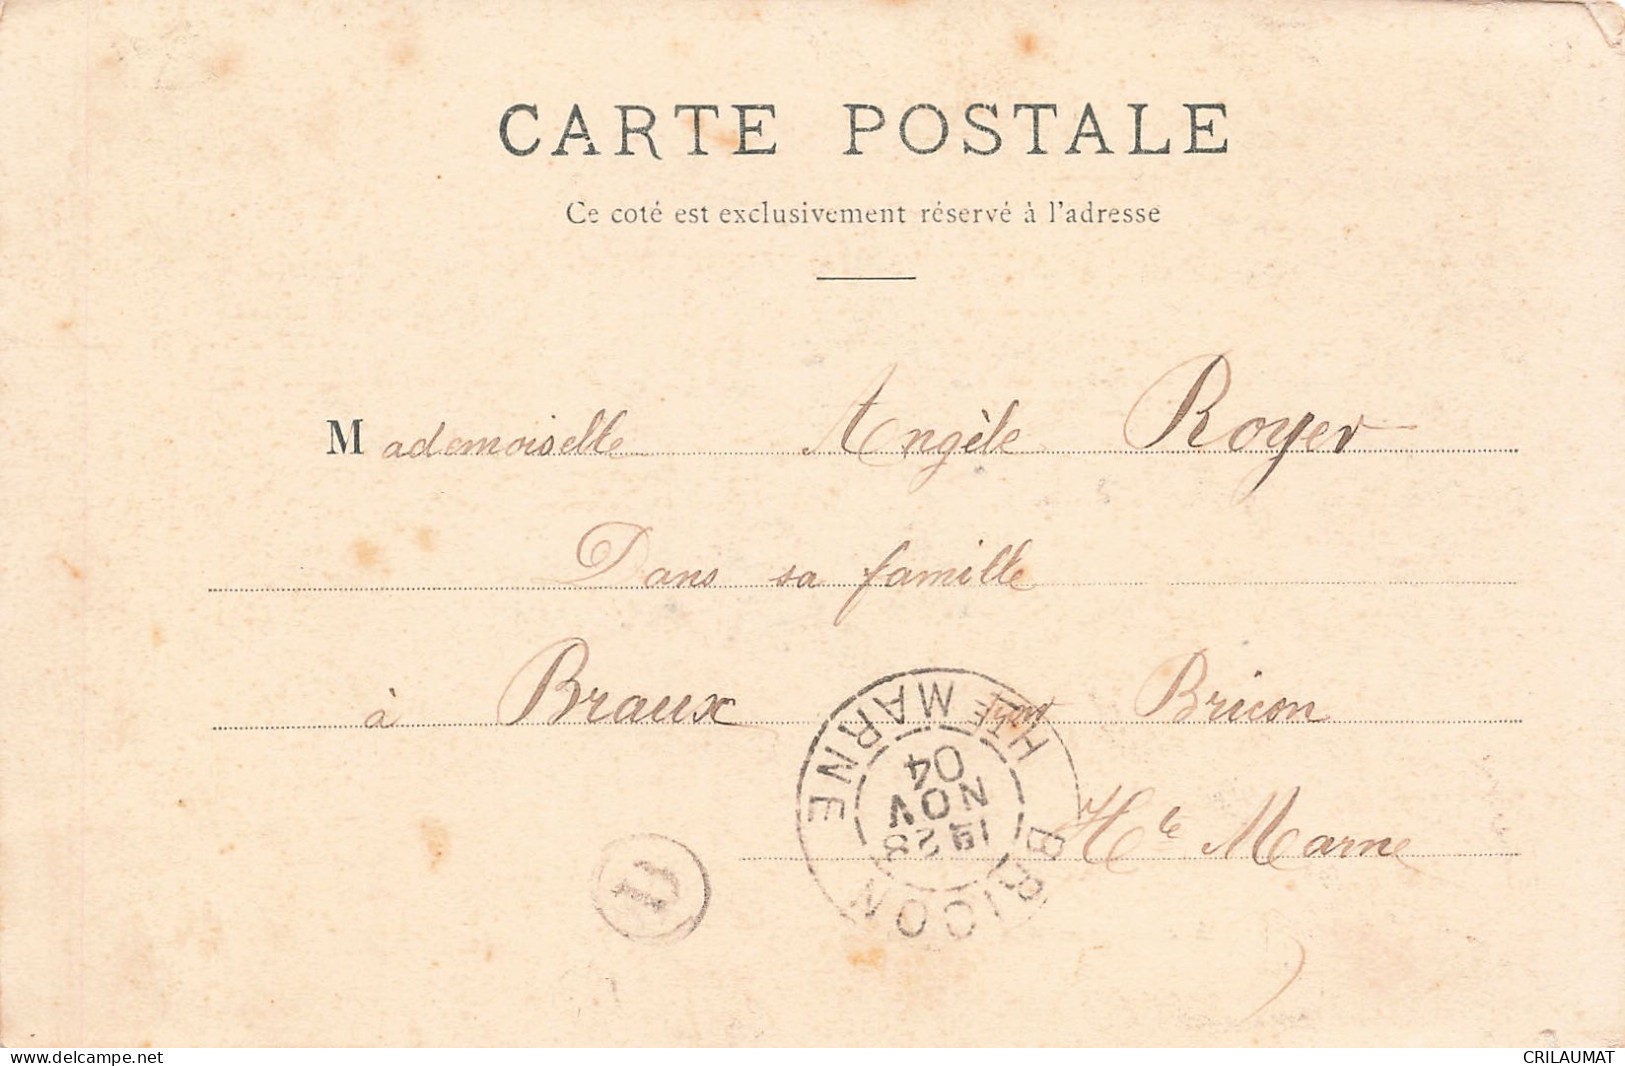 CARTE POSTALE
Ce coté est exclusivement réservé à l'adresse
Mademoiselle Angèle Royer
Dans sa famille
à Braux par Bricon
Hte Marne
BRICON HTE MARNE
28
NOV
04
delcampe.net
CRILAUMAT